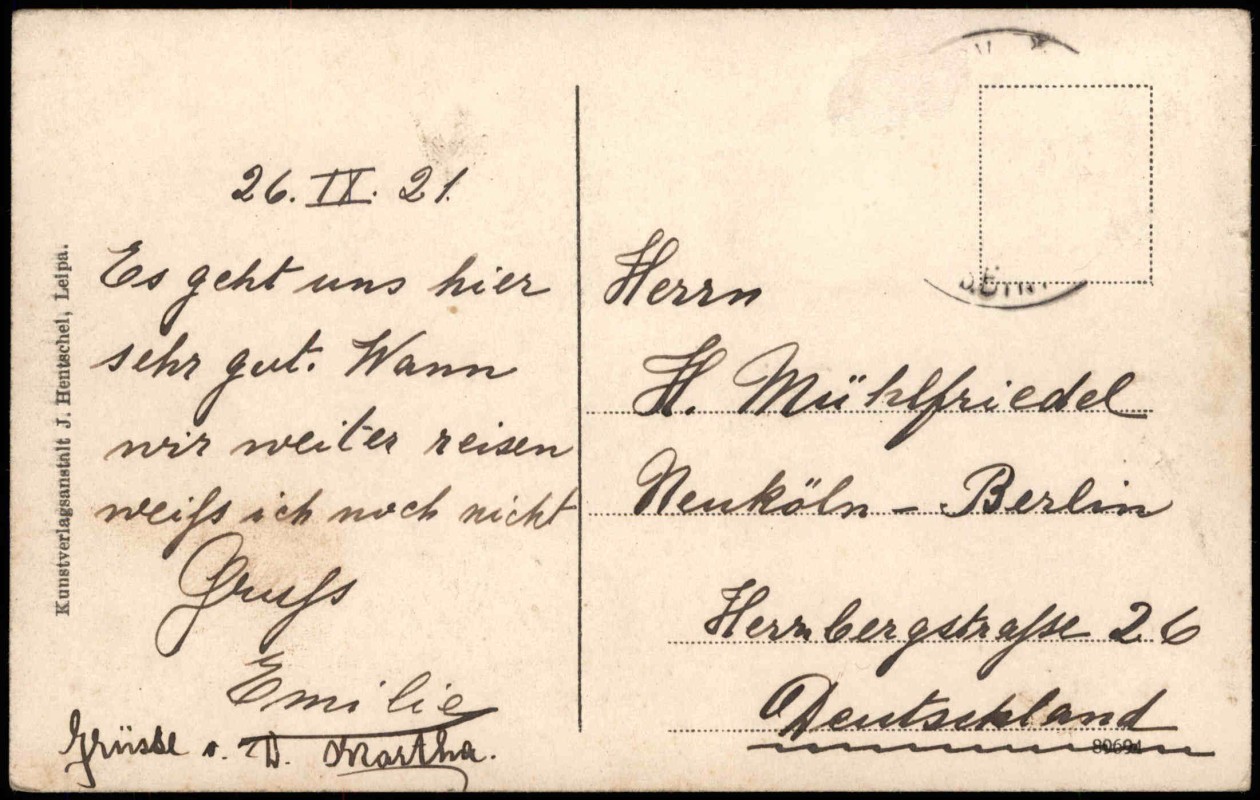 26. IX. 21.
Es geht uns hier
sehr gut. Wann
wir weiter reisen
weiſs ich noch nicht
Gruſs
Emilie
Grüsse v. D. Martha.
Kunstverlagsanstalt J. Hentschel, Leipa.
Herrn
H. Mühlfriedel
Neuköln - Berlin
Herrnbergstraſse 26
Deutschland
89694